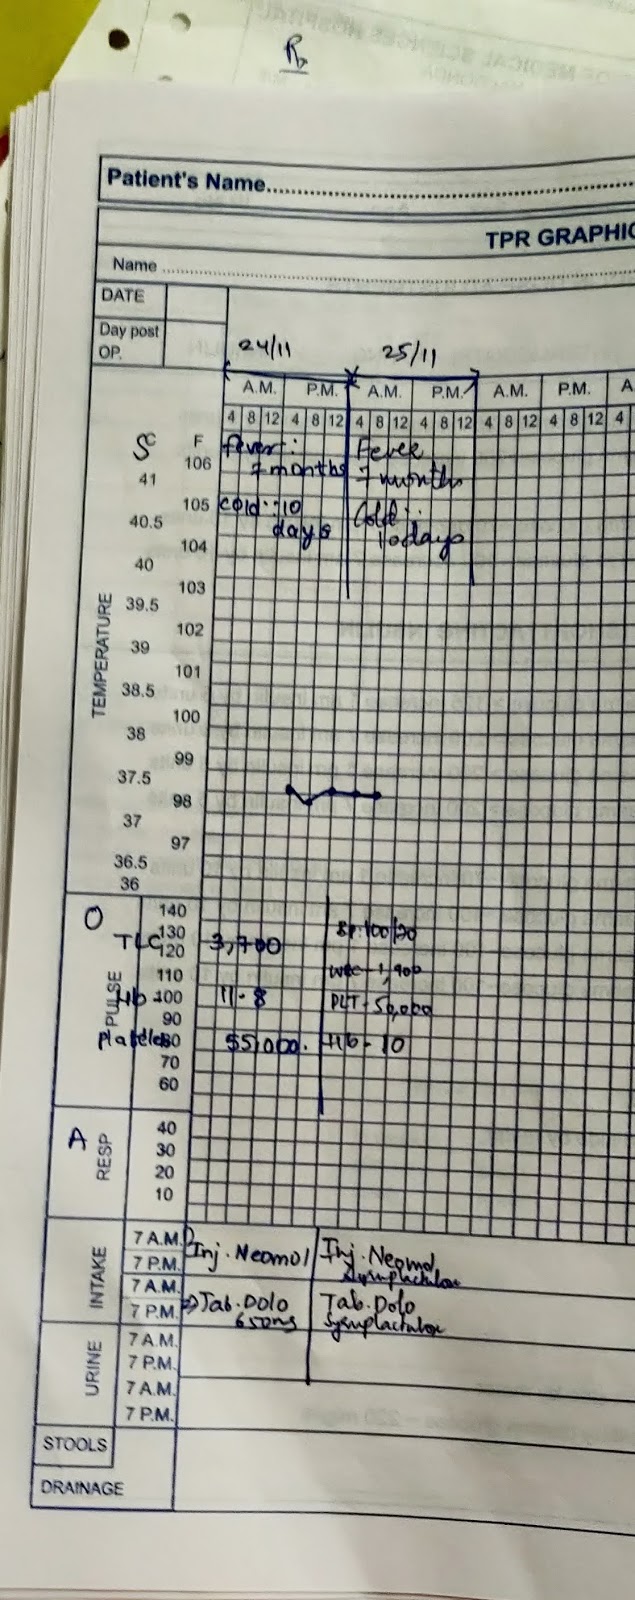 Rx
Patient's Name
TPR GRAPHIC
Name
DATE
Day post OP.
24/11 25/11
A.M. P.M. A.M. P.M. A.M. P.M. A
4 8 12 4 8 12 4 8 12 4 8 12 4 8 12 4 8 12 4
C F
fever: Fever
106
7 months 7 months
41
105
cold: 10 Cold:
40.5
days 10days
104
40
103
39.5
102
39
101
38.5
TEMPERATURE
100
38
99
37.5
98
37
97
36.5
36
O
140
130
TLC 3,700 BP:100/70
120
110
WBC-1,900
Hb 100 11.8 PLT-50,000
PULSE
90
80
55,000. Hb-10
70
60
A
RESP
40
30
20
10
INTAKE
7 A.M. Inj.Neomol Inj.Neomol
7 P.M.
7 A.M.
7 P.M. Tab.Dolo Tab.Dolo
650mg
URINE
7 A.M.
7 P.M.
7 A.M.
7 P.M.
STOOLS
DRAINAGE